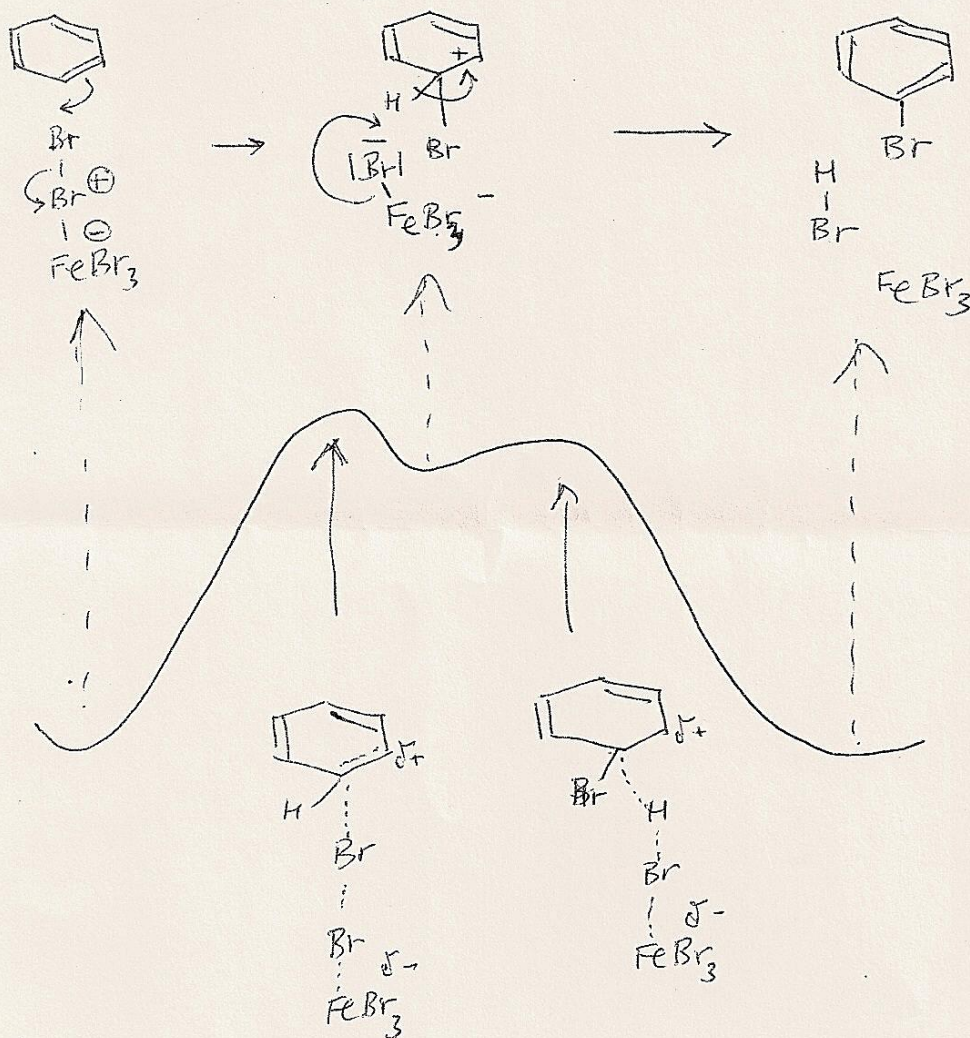 Br
Br ⊕
⊖
FeBr3
+
H
Br
|Br|
FeBr3 −
Br
H
Br
FeBr3
δ+
H
Br
Br
δ−
FeBr3
δ+
Br
H
Br
δ−
FeBr3